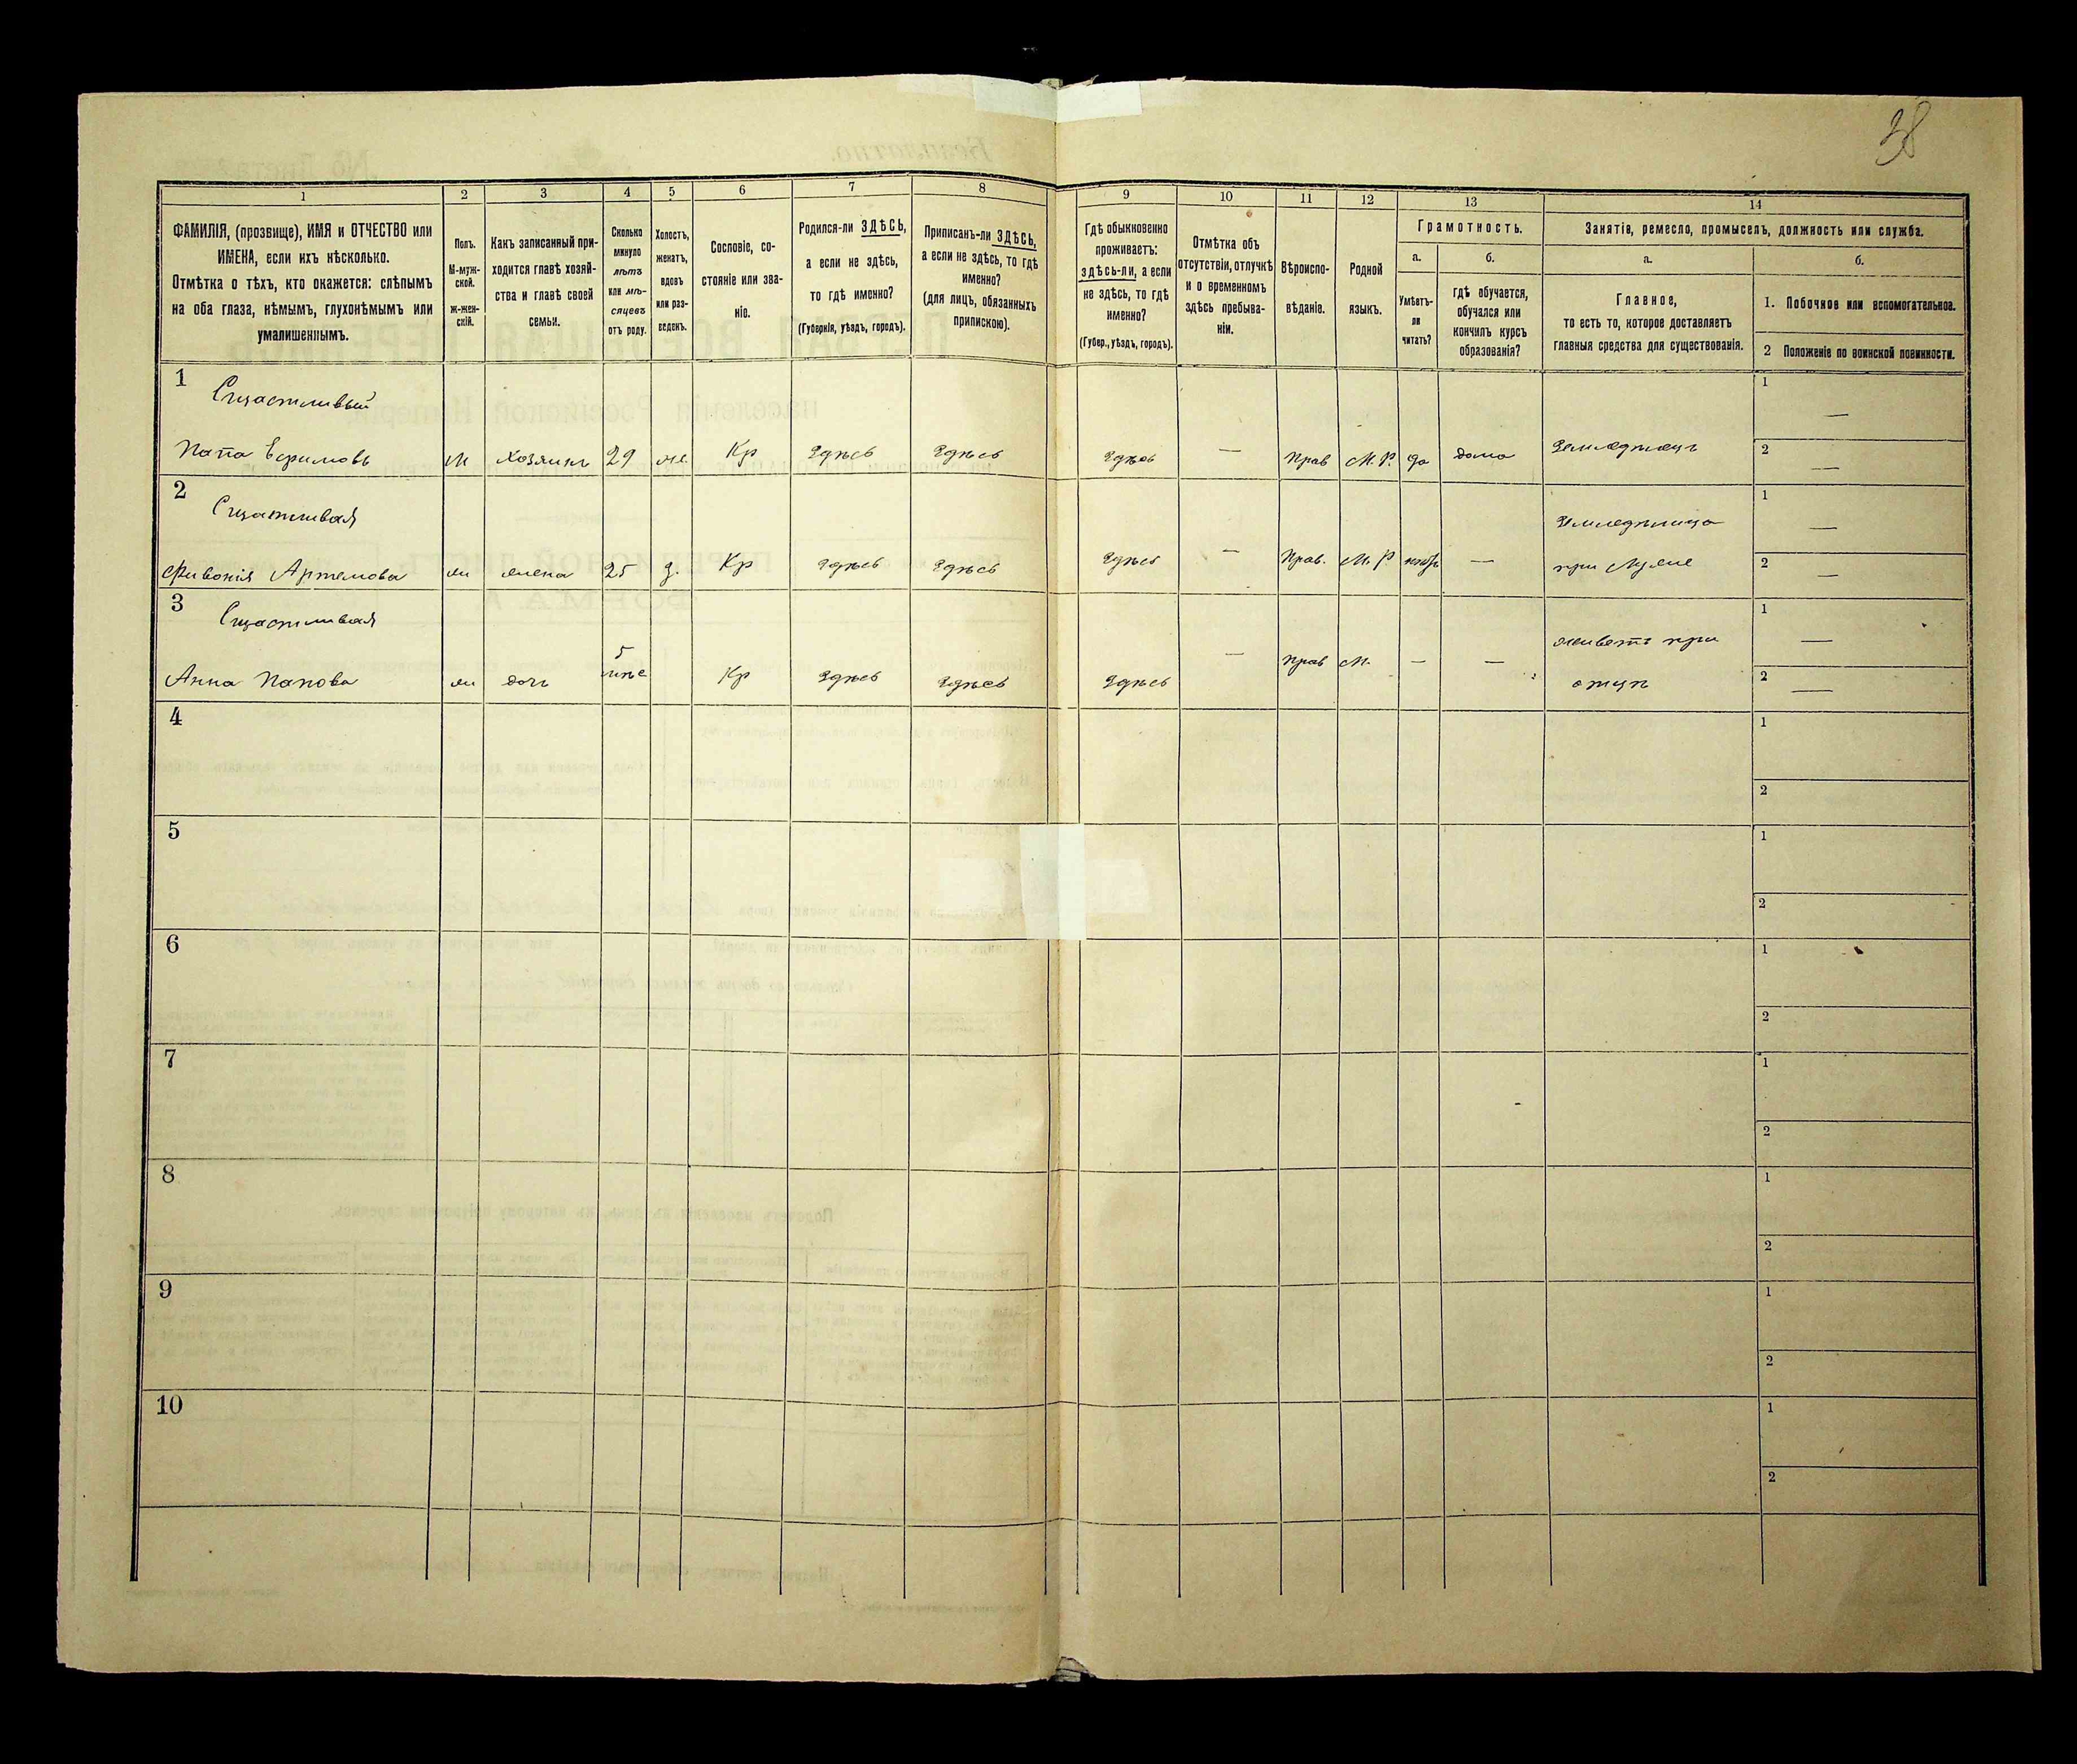 38
1 2 3 4 5 6 7 8 9 10 11 12 13 14
ФАМИЛІЯ, (прозвище), ИМЯ и ОТЧЕСТВО или
ИМЕНА, если ихъ нѣсколько.
Отмѣтка о тѣхъ, кто окажется: слѣпымъ
на оба глаза, нѣмымъ, глухонѣмымъ или
умалишеннымъ.
Полъ.
М-муж-
ской.
ж-жен-
скій.
Какъ записанный при-
ходится главѣ хозяй-
ства и главѣ своей
семьи.
Сколько
минуло
лѣтъ
или мѣ-
сяцевъ
отъ роду.
Холостъ,
женатъ,
вдовъ
или раз-
веденъ.
Сословіе, со-
стояніе или зва-
ніе.
Родился-ли ЗДѢСЬ,
а если не здѣсь,
то гдѣ именно?
(Губернія, уѣздъ, городъ).
Приписанъ-ли ЗДѢСЬ,
а если не здѣсь, то гдѣ
именно?
(для лицъ, обязанныхъ
припискою).
Гдѣ обыкновенно
проживаетъ:
здѣсь-ли, а если
не здѣсь, то гдѣ
именно?
(Губер., уѣздъ, городъ).
Отмѣтка объ
отсутствіи, отлучкѣ
и о временномъ
здѣсь пребыва-
ніи.
Вѣроиспо-
вѣданіе.
Родной
языкъ.
Грамотность.
а.
Умѣетъ-
ли
читать?
б.
Гдѣ обучается,
обучался или
кончилъ курсъ
образованія?
Занятіе, ремесло, промыселъ, должность или служба.
а.
Главное,
то есть то, которое доставляетъ
главныя средства для существованія.
б.
1. Побочное или вспомогательное.
2 Положеніе по воинской повинности.
1
Сщастливый
Папа Ефимовъ м хозяинъ 29 Кр Здѣсь Здѣсь Здѣсь — Прав М.Р. да дома Земледѣлецъ
1 —
2 —
2
Сщастливая
Фивонія Артемова жена 25 з. Кр Здѣсь Здѣсь Здѣсь — Прав. М.Р —
при мужѣ
1 —
2 —
3
Сщастливая
Анна Папова дочь 5 Кр Здѣсь Здѣсь Здѣсь — Прав М. — —
живетъ при
отцѣ
1 —
2 —
4
1
2
5
1
2
6
1
2
7
1
2
8
1
2
9
1
2
10
1
2